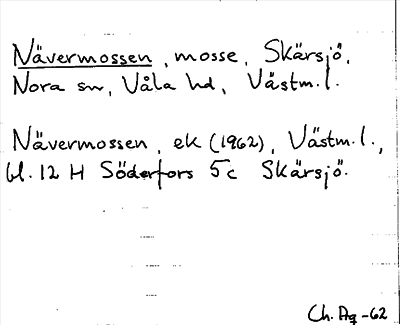 Nävermossen, mosse, Skärsjö,
Nora sn, Våla hd, Västm.l.
Nävermossen, ek (1962), Västm.l.,
bl. 12 H Söderfors 5c Skärsjö.
Ch. Ag -62